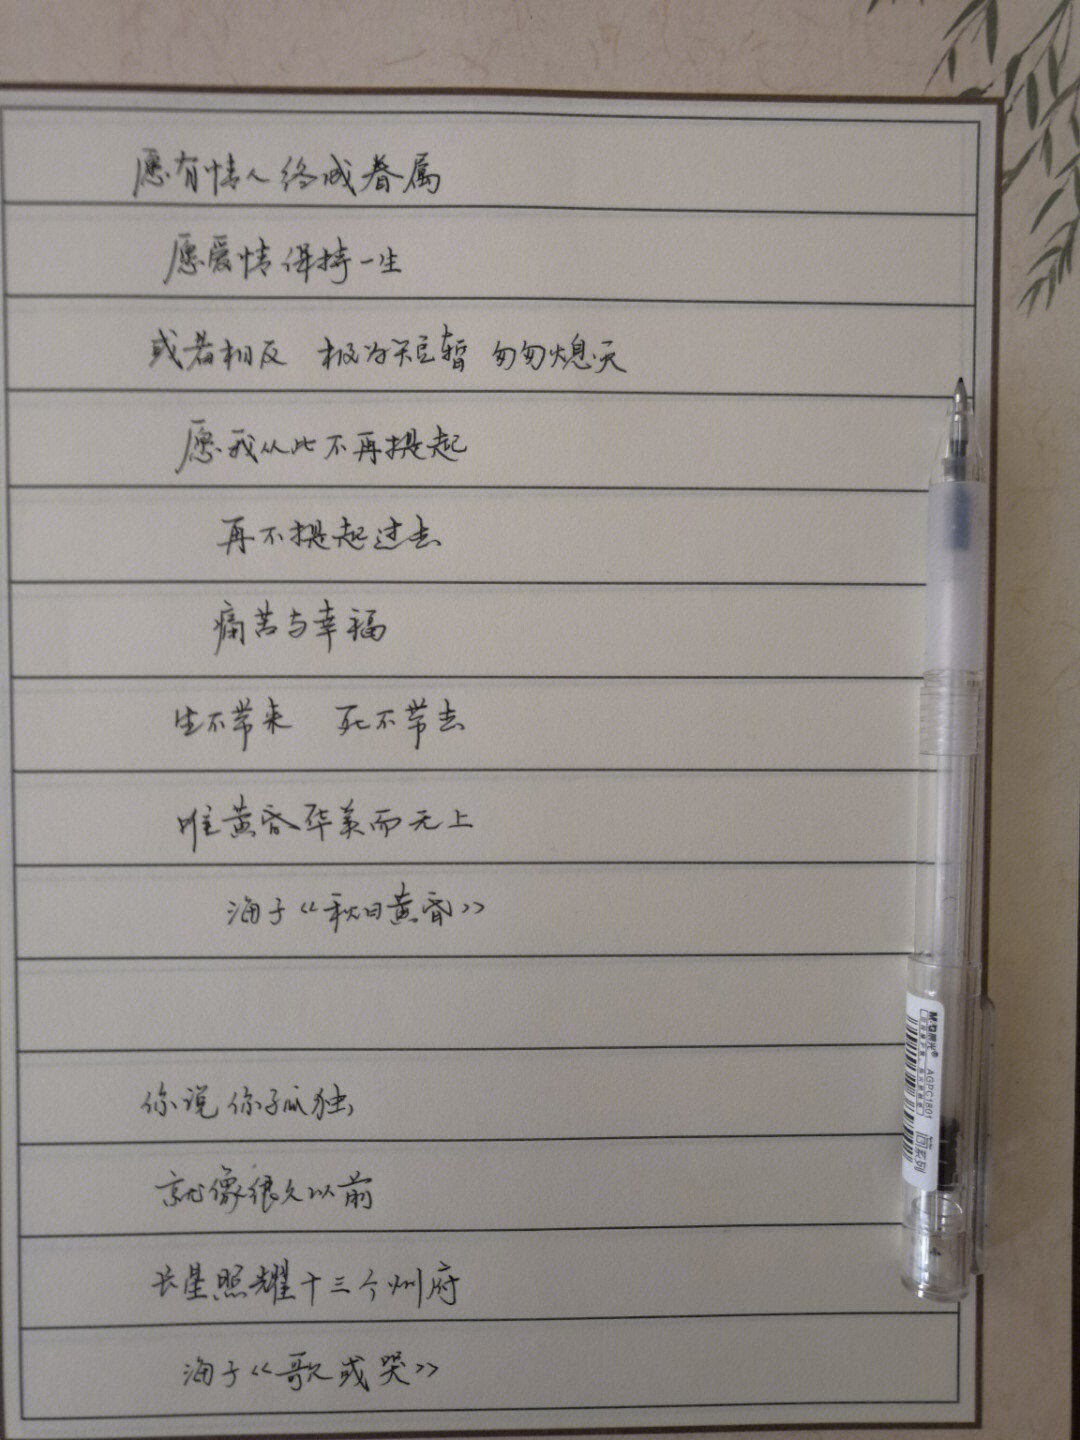 愿有情人终成眷属
愿爱情保持一生
或者相反 极为短暂 匆匆熄灭
愿我从此不再提起
再不提起过去
痛苦与幸福
生不带来 死不带去
唯黄昏华美而无上
海子《秋日黄昏》
你说你孤独
就像很久以前
长星照耀十三个州府
海子《歌或哭》
M&G晨光®
AGPC1801